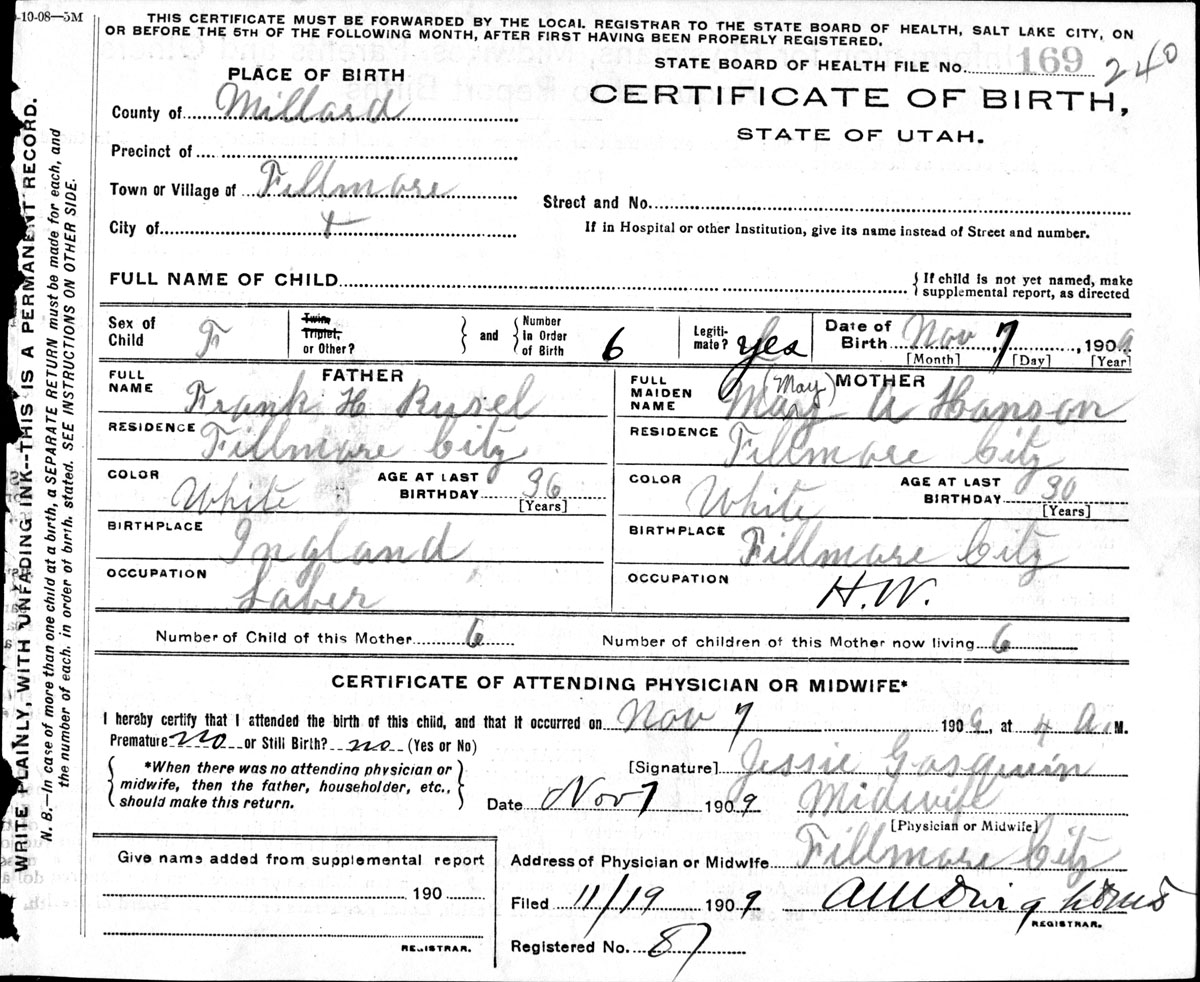 -10-08—5M
THIS CERTIFICATE MUST BE FORWARDED BY THE LOCAL REGISTRAR TO THE STATE BOARD OF HEALTH, SALT LAKE CITY, ON
OR BEFORE THE 5TH OF THE FOLLOWING MONTH, AFTER FIRST HAVING BEEN PROPERLY REGISTERED.
STATE BOARD OF HEALTH FILE NO. 169 240
CERTIFICATE OF BIRTH,
STATE OF UTAH.
PLACE OF BIRTH
County of Millard
Precinct of
Town or Village of Fillmore
City of
Street and No.
If in Hospital or other Institution, give its name instead of Street and number.
FULL NAME OF CHILD
If child is not yet named, make
supplemental report, as directed
Sex of Child F
Twin, Triplet, or Other?
and
Number In Order of Birth 6
Legiti-mate? yes
Date of Birth Nov 7, 1909
[Month] [Day] [Year]
FATHER
FULL NAME Frank H Rusel
RESIDENCE Fillmore City
COLOR White
AGE AT LAST BIRTHDAY 36
[Years]
BIRTHPLACE Ingland
OCCUPATION Laber
MOTHER
FULL MAIDEN NAME Mary (May) A Hanson
RESIDENCE Fillmore City
COLOR White
AGE AT LAST BIRTHDAY 30
[Years]
BIRTHPLACE Fillmore City
OCCUPATION H.W.
Number of Child of this Mother 6
Number of children of this Mother now living 6
CERTIFICATE OF ATTENDING PHYSICIAN OR MIDWIFE*
I hereby certify that I attended the birth of this child, and that it occurred on Nov 7 1909, at 4 A. M.
Premature no or Still Birth? no (Yes or No)
*When there was no attending physician or
midwife, then the father, householder, etc.,
should make this return.
[Signature] Jessie
Date Nov 7 1909
Midwife
[Physician or Midwife]
Address of Physician or Midwife Fillmore City
Give name added from supplemental report
190
REGISTRAR.
Filed 11/19 1909
REGISTRAR.
Registered No. 87
WRITE PLAINLY, WITH UNFADING INK--THIS IS A PERMANENT RECORD.
N. B.—In case of more than one child at a birth, a SEPARATE RETURN must be made for each, and
the number of each, in order of birth, stated. SEE INSTRUCTIONS ON OTHER SIDE.